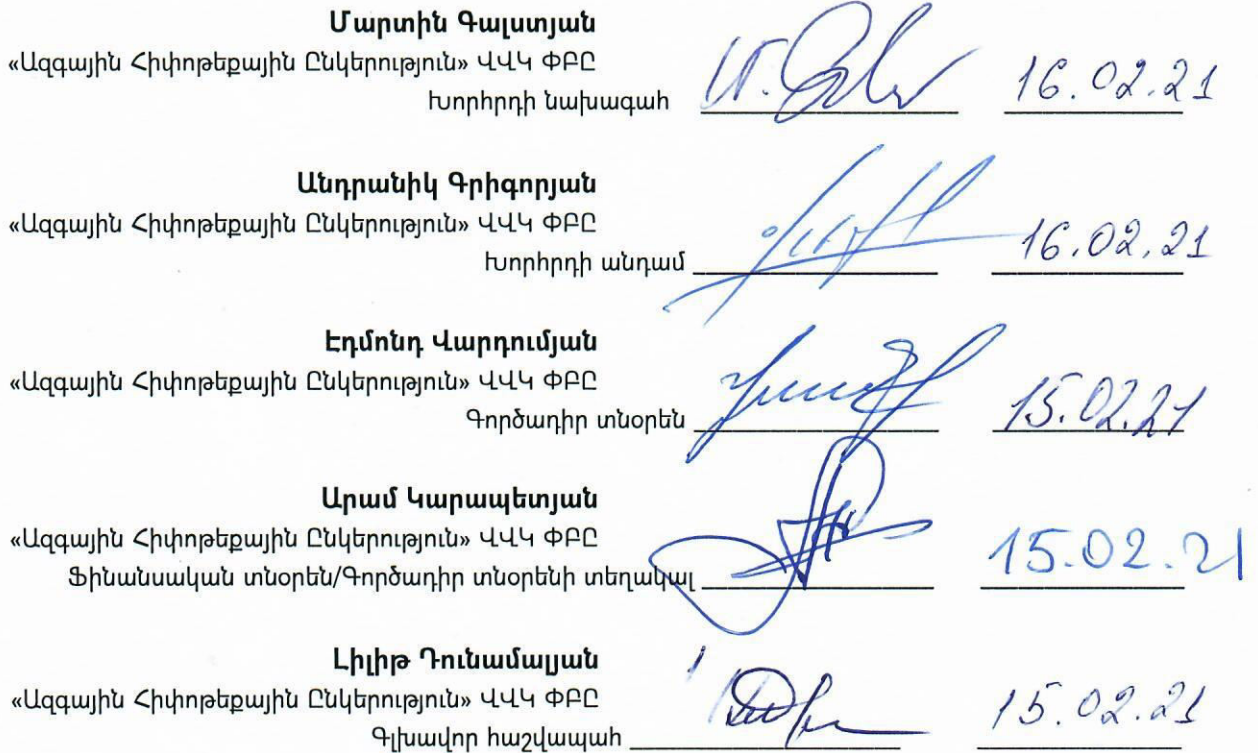 Մարտին Գալստյան
«Ազգային Հիփոթեքային Ընկերություն» ՎՎԿ ՓԲԸ
Խորհրդի նախագահ 16.02.21
Անդրանիկ Գրիգորյան
«Ազգային Հիփոթեքային Ընկերություն» ՎՎԿ ՓԲԸ
Խորհրդի անդամ 16.02.21
Էդմոնդ Վարդումյան
«Ազգային Հիփոթեքային Ընկերություն» ՎՎԿ ՓԲԸ
Գործադիր տնօրեն 15.02.21
Արամ Կարապետյան
«Ազգային Հիփոթեքային Ընկերություն» ՎՎԿ ՓԲԸ
Ֆինանսական տնօրեն/Գործադիր տնօրենի տեղակալ 15.02.21
Լիլիթ Դունամալյան
«Ազգային Հիփոթեքային Ընկերություն» ՎՎԿ ՓԲԸ
Գլխավոր հաշվապահ 15.02.21